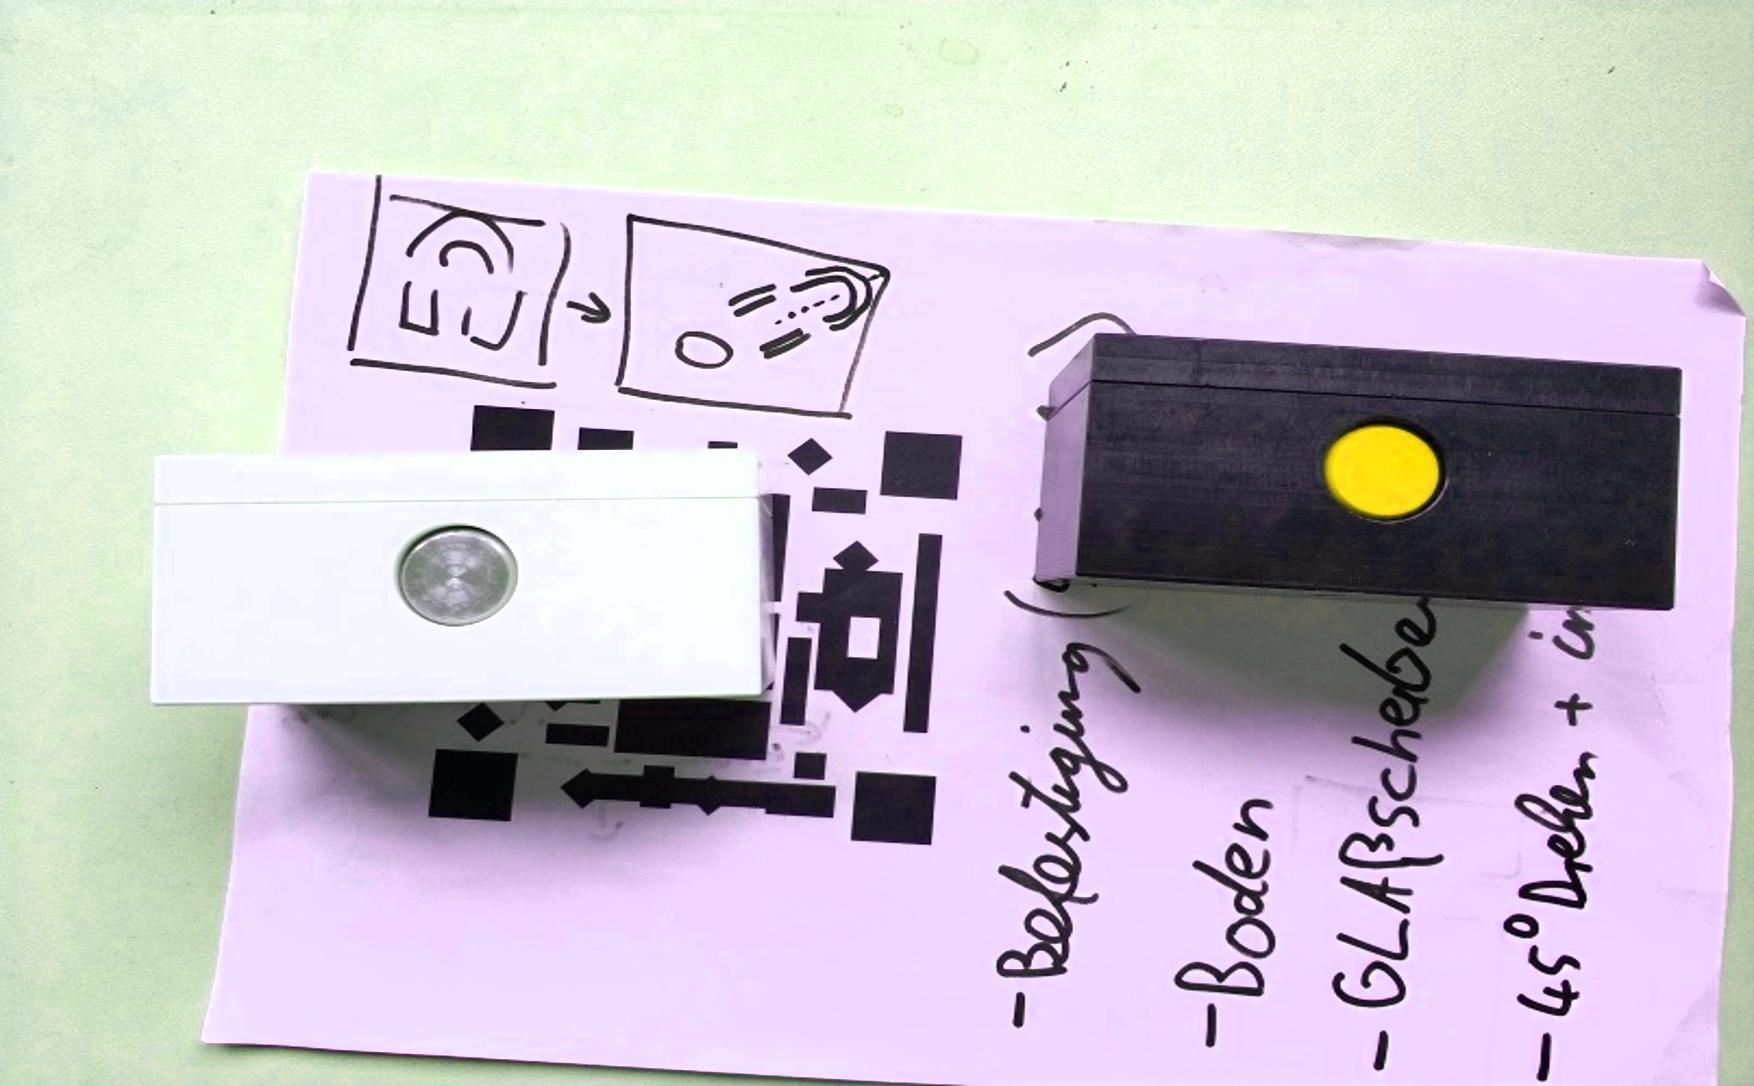 - Befestigung (
- Boden
- GLAßscheibe
- 45° Drehen + in